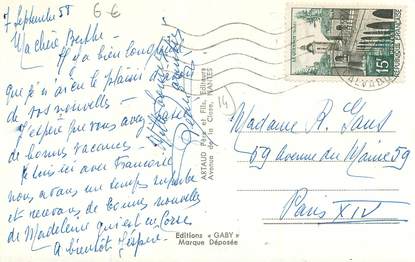 7 Septembre 58
6 €
Ma chère Berthe -
Il y a bien longtemps
que je n'ai eu le plaisir d'avoir
de vos nouvelles -
J'espère que vous avez
de bonnes vacances -
Je suis ici avec Francine
nous avons un temps superbe
et recevons de bonnes nouvelles
de Madeleine qui est en Corse
A bientôt j'espère -
ARTAUD Père et Fils, Editeurs
Avenue de la Close, NANTES
14
Editions « GABY »
Marque Déposée
15F
Madame R.
59 avenue du Maine 59
Paris XIV